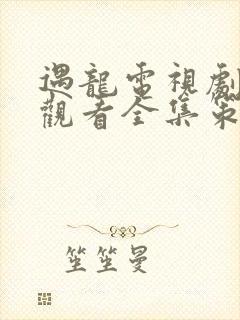 遇龍電視劇
觀看全集策
笙笙曼